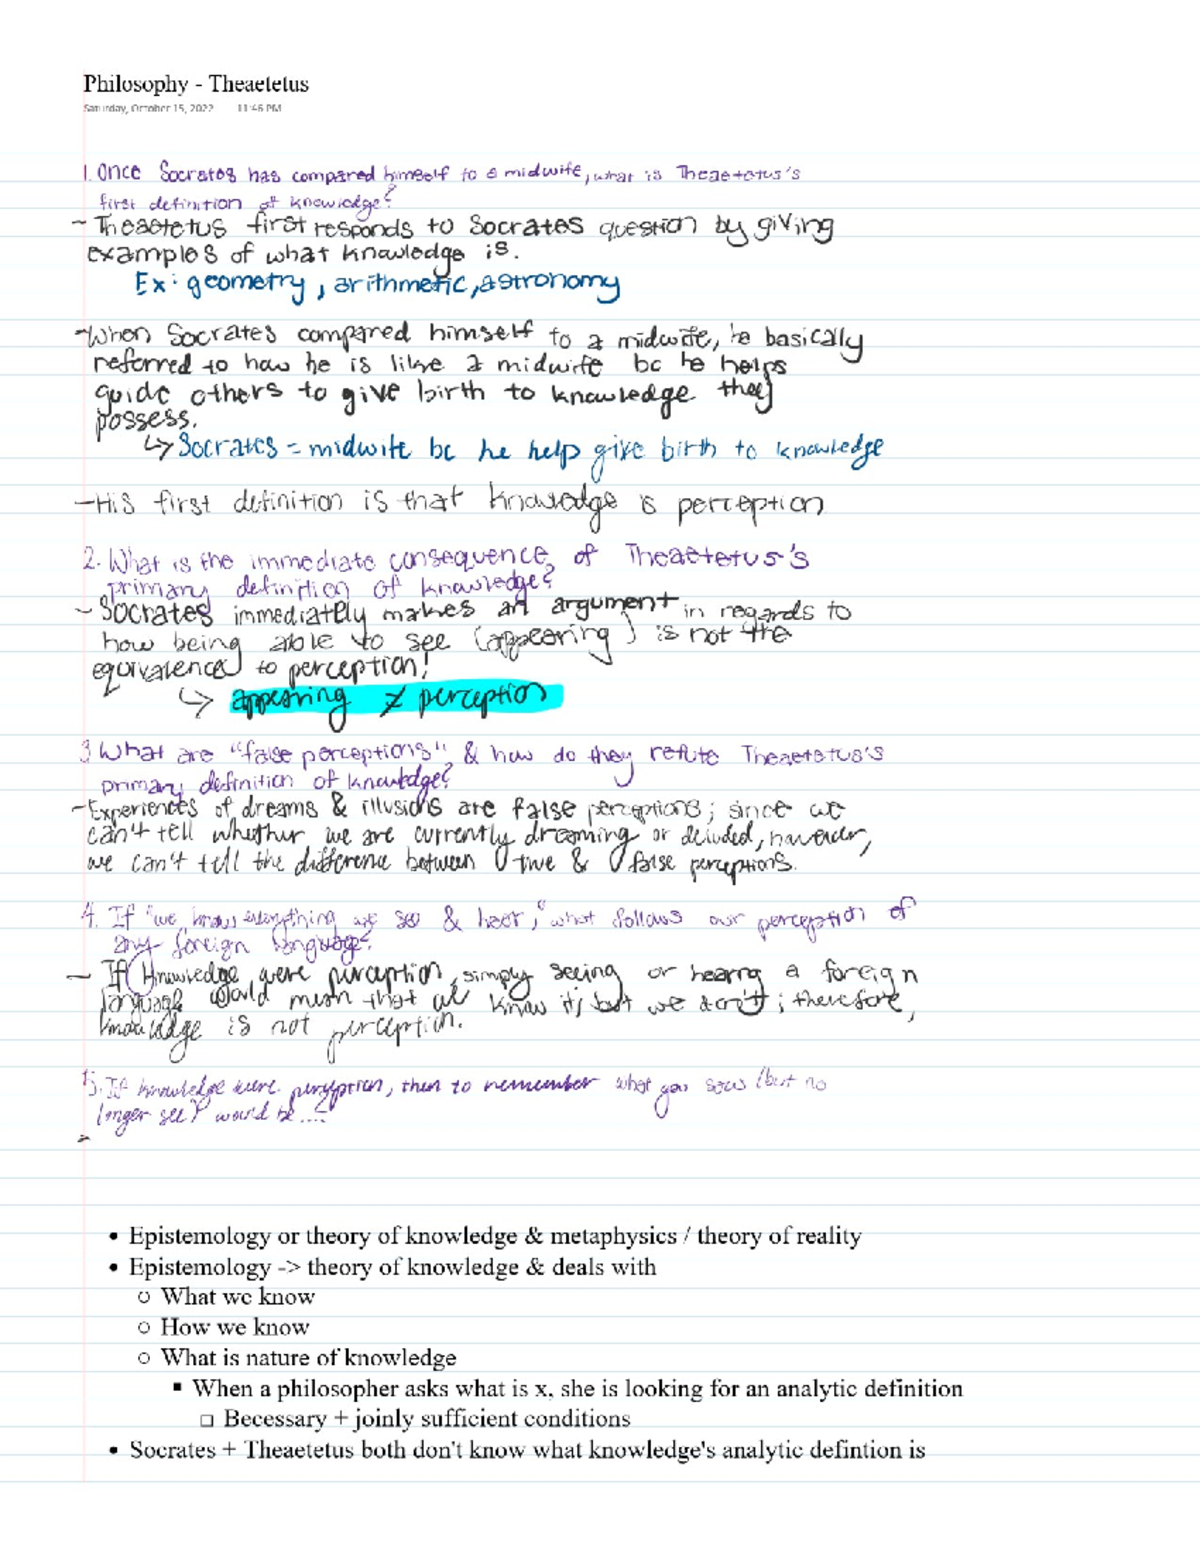 Philosophy - Theaetetus
Saturday, October 15, 2022 11:46 PM
1. Once Socrates has compared himself to a midwife, what is Theaetetus's
first definition of knowledge?
- Theaetetus first responds to Socrates question by giving
examples of what knowledge is.
Ex: geometry, arithmetic, astronomy
- When Socrates compared himself to a midwife, he basically
referred to how he is like a midwife bc he helps
guide others to give birth to knowledge they
possess.
↳ Socrates = midwife bc he help give birth to knowledge
- His first definition is that knowledge is perception
2. What is the immediate consequence of Theaetetus's
primary definition of knowledge?
- Socrates immediately makes an argument in regards to
how being able to see (appearing) is not the
equivalence to perception!
↳ appearing ≠ perception
3 What are "false perceptions", & how do they refute Theaetetus's
primary definition of knowledge?
- Experiences of dreams & illusions are false perceptions; since we
can't tell whether we are currently dreaming or deluded, however,
we can't tell the difference between true & false perceptions.
4. If "we know everything we see & hear," what follows our perception of
any foreign language?
- If knowledge were perception, simply seeing or hearing a foreign
language would mean that we know it; but we don't; therefore,
knowledge is not perception.
5. If knowledge were perception, then to remember what you saw (but no
longer see) would be....
-
• Epistemology or theory of knowledge & metaphysics / theory of reality
• Epistemology -> theory of knowledge & deals with
○ What we know
○ How we know
○ What is nature of knowledge
▪ When a philosopher asks what is x, she is looking for an analytic definition
□ Becessary + joinly sufficient conditions
• Socrates + Theaetetus both don't know what knowledge's analytic defintion is